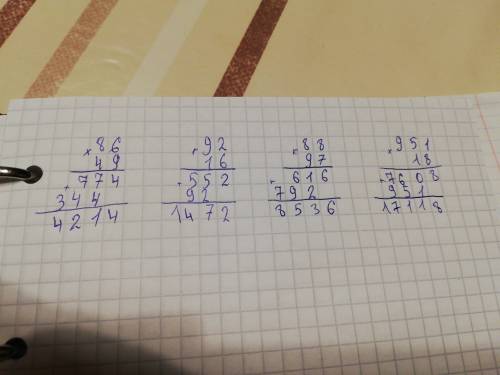 × 86
49
+ 774
344
4214
× 92
16
+ 552
92
1472
× 88
97
+ 616
792
8536
× 951
18
+ 7608
951
17118